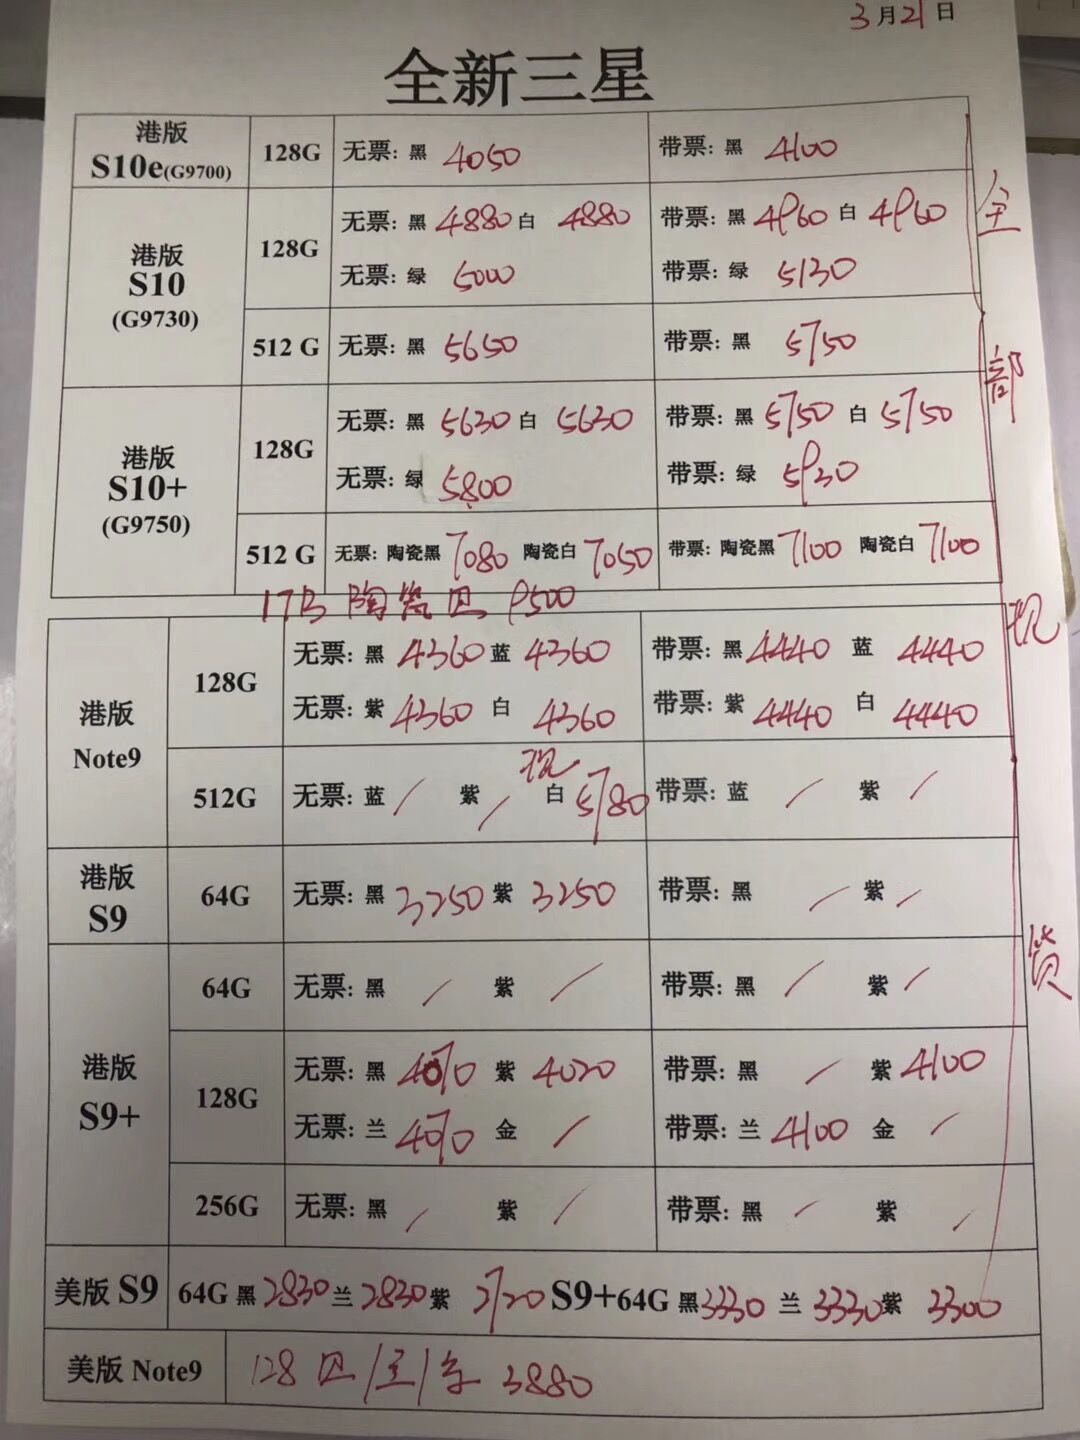 3月21日
全新三星
港版 S10e(G9700) 128G 无票: 黑 4050 带票: 黑 4100
港版 S10 (G9730) 128G 无票: 黑 4880 白 4880 带票: 黑 4960 白 4960
无票: 绿 5000 带票: 绿 5130
512 G 无票: 黑 5650 带票: 黑 5750
港版 S10+ (G9750) 128G 无票: 黑 5630 白 5630 带票: 黑 5750 白 5750
无票: 绿 5800 带票: 绿 5930
512 G 无票: 陶瓷黑 7080 陶瓷白 7050 带票: 陶瓷黑 7100 陶瓷白 7100
1TB 陶瓷黑 9500
港版 Note9 128G 无票: 黑 4360 蓝 4360 带票: 黑 4440 蓝 4440
无票: 紫 4360 白 4360 带票: 紫 4440 白 4440
512G 无票: 蓝 / 紫 / 现 白 5780 带票: 蓝 / 紫 /
港版 S9 64G 无票: 黑 3250 紫 3250 带票: 黑 / 紫 /
港版 S9+ 64G 无票: 黑 / 紫 / 带票: 黑 / 紫 /
128G 无票: 黑 4070 紫 4020 带票: 黑 / 紫 4100
无票: 兰 4070 金 / 带票: 兰 4100 金 /
256G 无票: 黑 / 紫 / 带票: 黑 / 紫 /
美版 S9 64G 黑 2830 兰 2830 紫 2720 S9+64G 黑 3330 兰 3330 紫 3300
美版 Note9 128 3880
全部现货